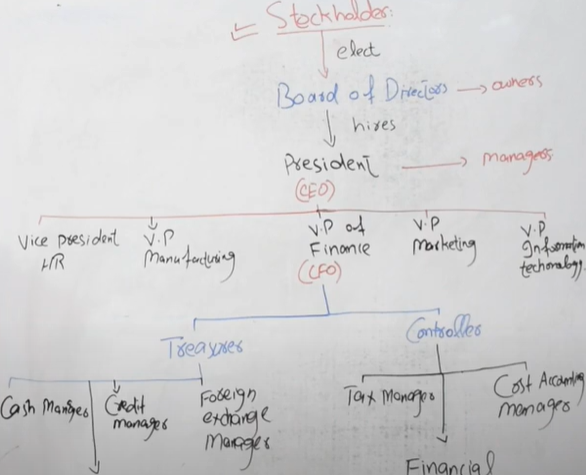 Stockholder:
elect
Board of Directors → owners
hires
President → managers
(CEO)
Vice president
HR
V.P
Manufacturing
V.P of
Finance
(CFO)
V.P
Marketing
V.P
Information
techonology
Treasurer
Controller
Cash Manger
Credit
manager
Foreign
exchange
Manager
Tax Manager
Cost Accounting
manager
Financial